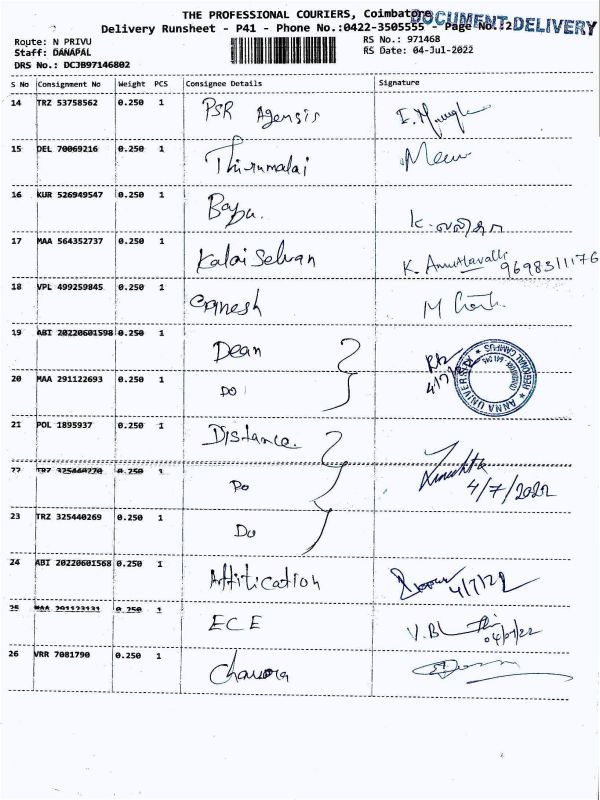 THE PROFESSIONAL COURIERS, Coimbatore
DOCUMENT DELIVERY
Delivery Runsheet - P41 - Phone No.:0422-3505555 - Page No.:2
Route: N PRIVU
RS No.: 971468
Staff: DANAPAL
RS Date: 04-Jul-2022
DRS No.: DCJB97146802
S No Consignment No Weight PCS Consignee Details Signature
14 TRZ 53758562 0.250 1 PSR Agensis
15 DEL 70069216 0.250 1 Thirumalai
16 KUR 526949547 0.250 1 Babu.
17 MAA 564352737 0.250 1 Kalai Selvan K. Amuthavalli 9698311176
18 VPL 499259845 0.250 1 Ganesh
19 ABI 20220601598 0.250 1 Dean
20 MAA 291122693 0.250 1 Do 4/7/22
ANNA UNIVERSITY REGIONAL CAMPUS
21 POL 1895937 0.250 1 Distance.
22 TRZ 325440270 0.250 1 Do 4/7/2022
23 TRZ 325440269 0.250 1 Do
24 ABI 20220601568 0.250 1 Affitication 4/7/22
25 MAA 291123131 0.250 1 ECE V.B 04/07/22
26 VRR 7081790 0.250 1